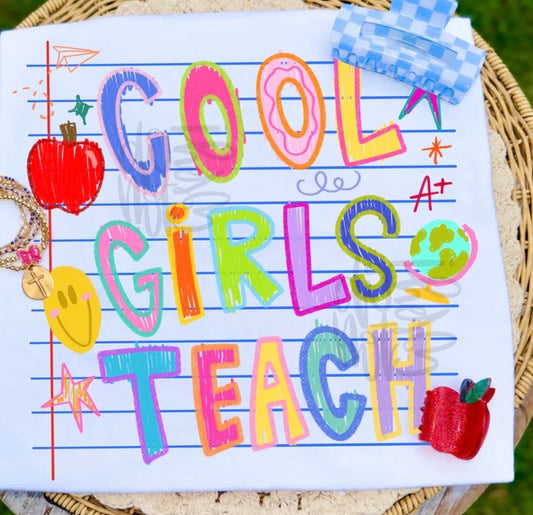 COOL
A+
GiRLS
TEACH